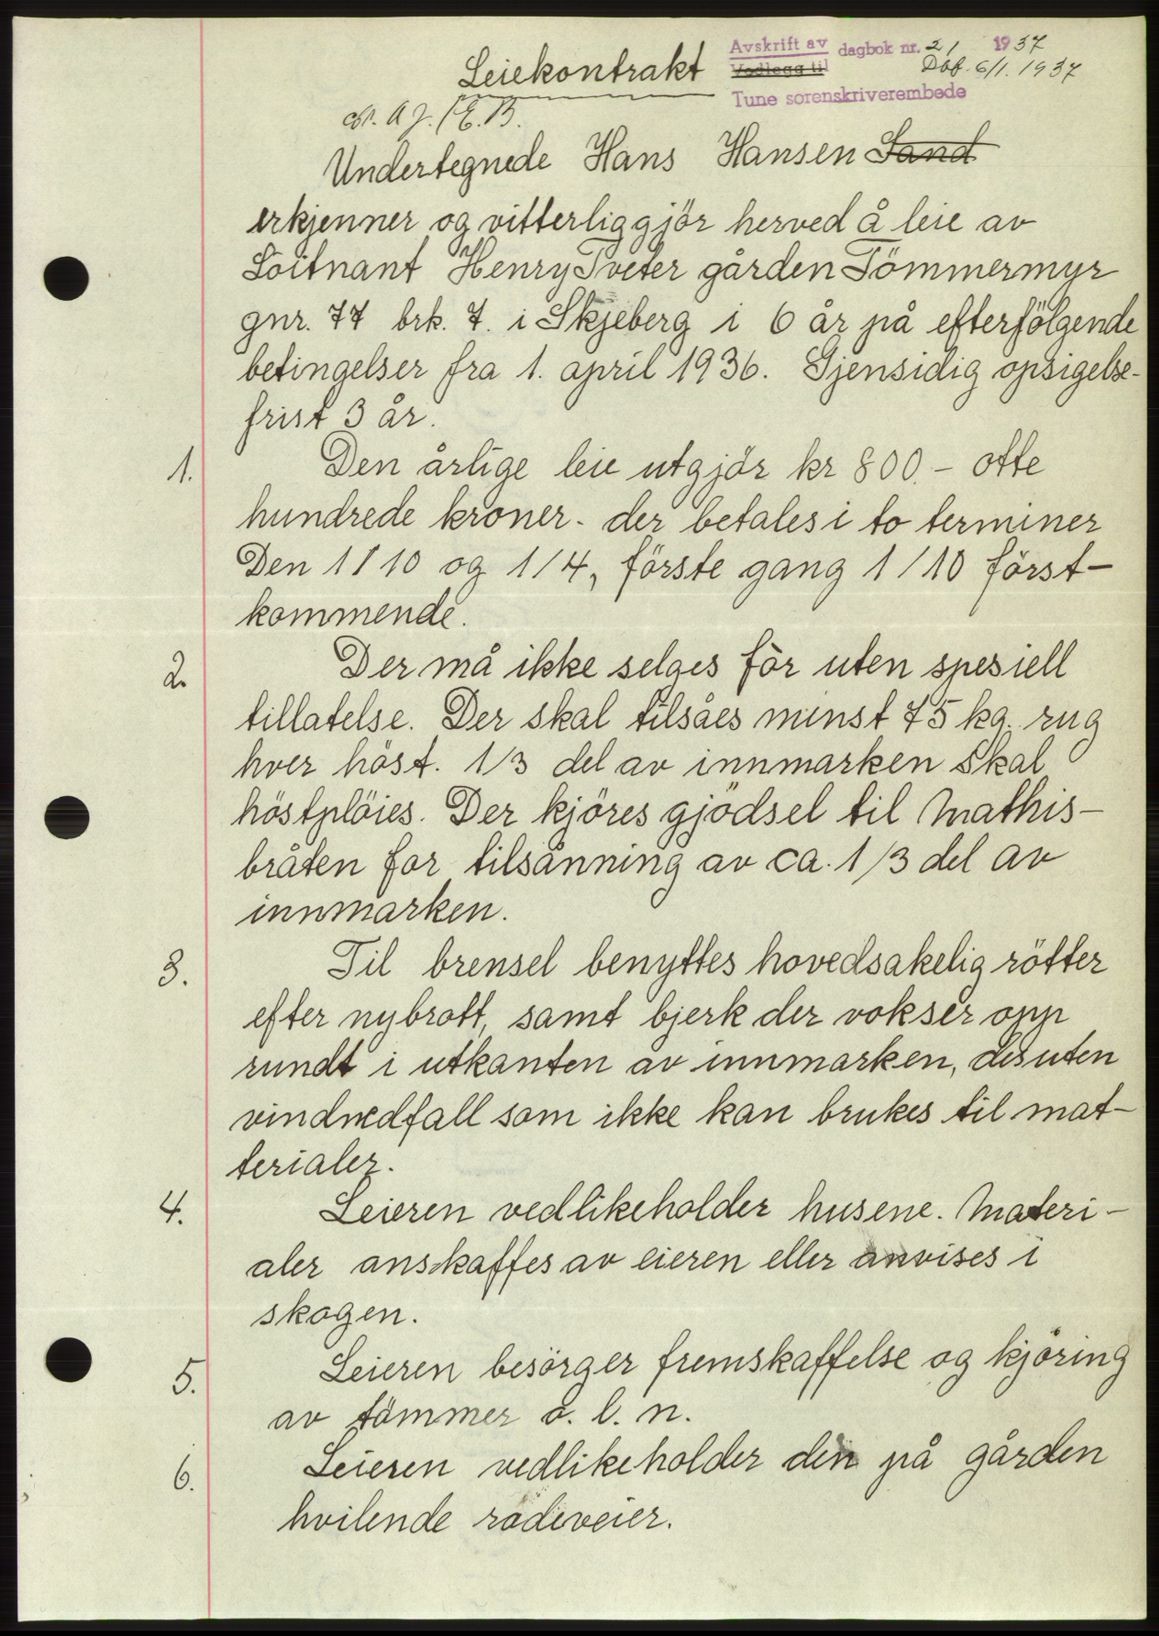 Leiekontrakt
Avskrift av dagbok nr. 21 1937
Vedlegg til Dbf. 6/1. 1937
Tune sorenskriverembede
Undertegnede Hans Hansen Sand
erkjenner og vitterliggjör herved å leie av
Löitnant Henry Tveter gården Tömmermyr
gnr. 77 brk. 7. i Skjeberg i 6 år på efterfölgende
betingelser fra 1. april 1936. Gjensidig opsigelse-
frist 3 år.
1. Den årlige leie utgjör kr 800.- otte
hundrede kroner - der betales i to terminer
Den 1/10 og 1/4, förste gang 1/10 först-
kommende.
2. Der må ikke selges fòr uten spesiell
tillatelse. Der skal tilsåes minst 75 kg. rug
hver höst. 1/3 del av innmarken skal
höstplöies. Der kjöres gjödsel til Mathis-
bråten for tilsånning av ca. 1/3 del av
innmarken.
3. Til brensel benyttes hovedsakelig rötter
efter nybrott, samt bjerk der vokser opp
rundt i utkanten av innmarken, desuten
vindnedfall som ikke kan brukes til mat-
terialer.
4. Leieren vedlikeholder husene. Materi-
aler anskaffes av eieren eller anvises i
skogen.
5. Leieren besörger fremskaffelse og kjöring
av tömmer o. l. n.
6. Leieren vedlikeholder den på gården
hvilende rodeveier.